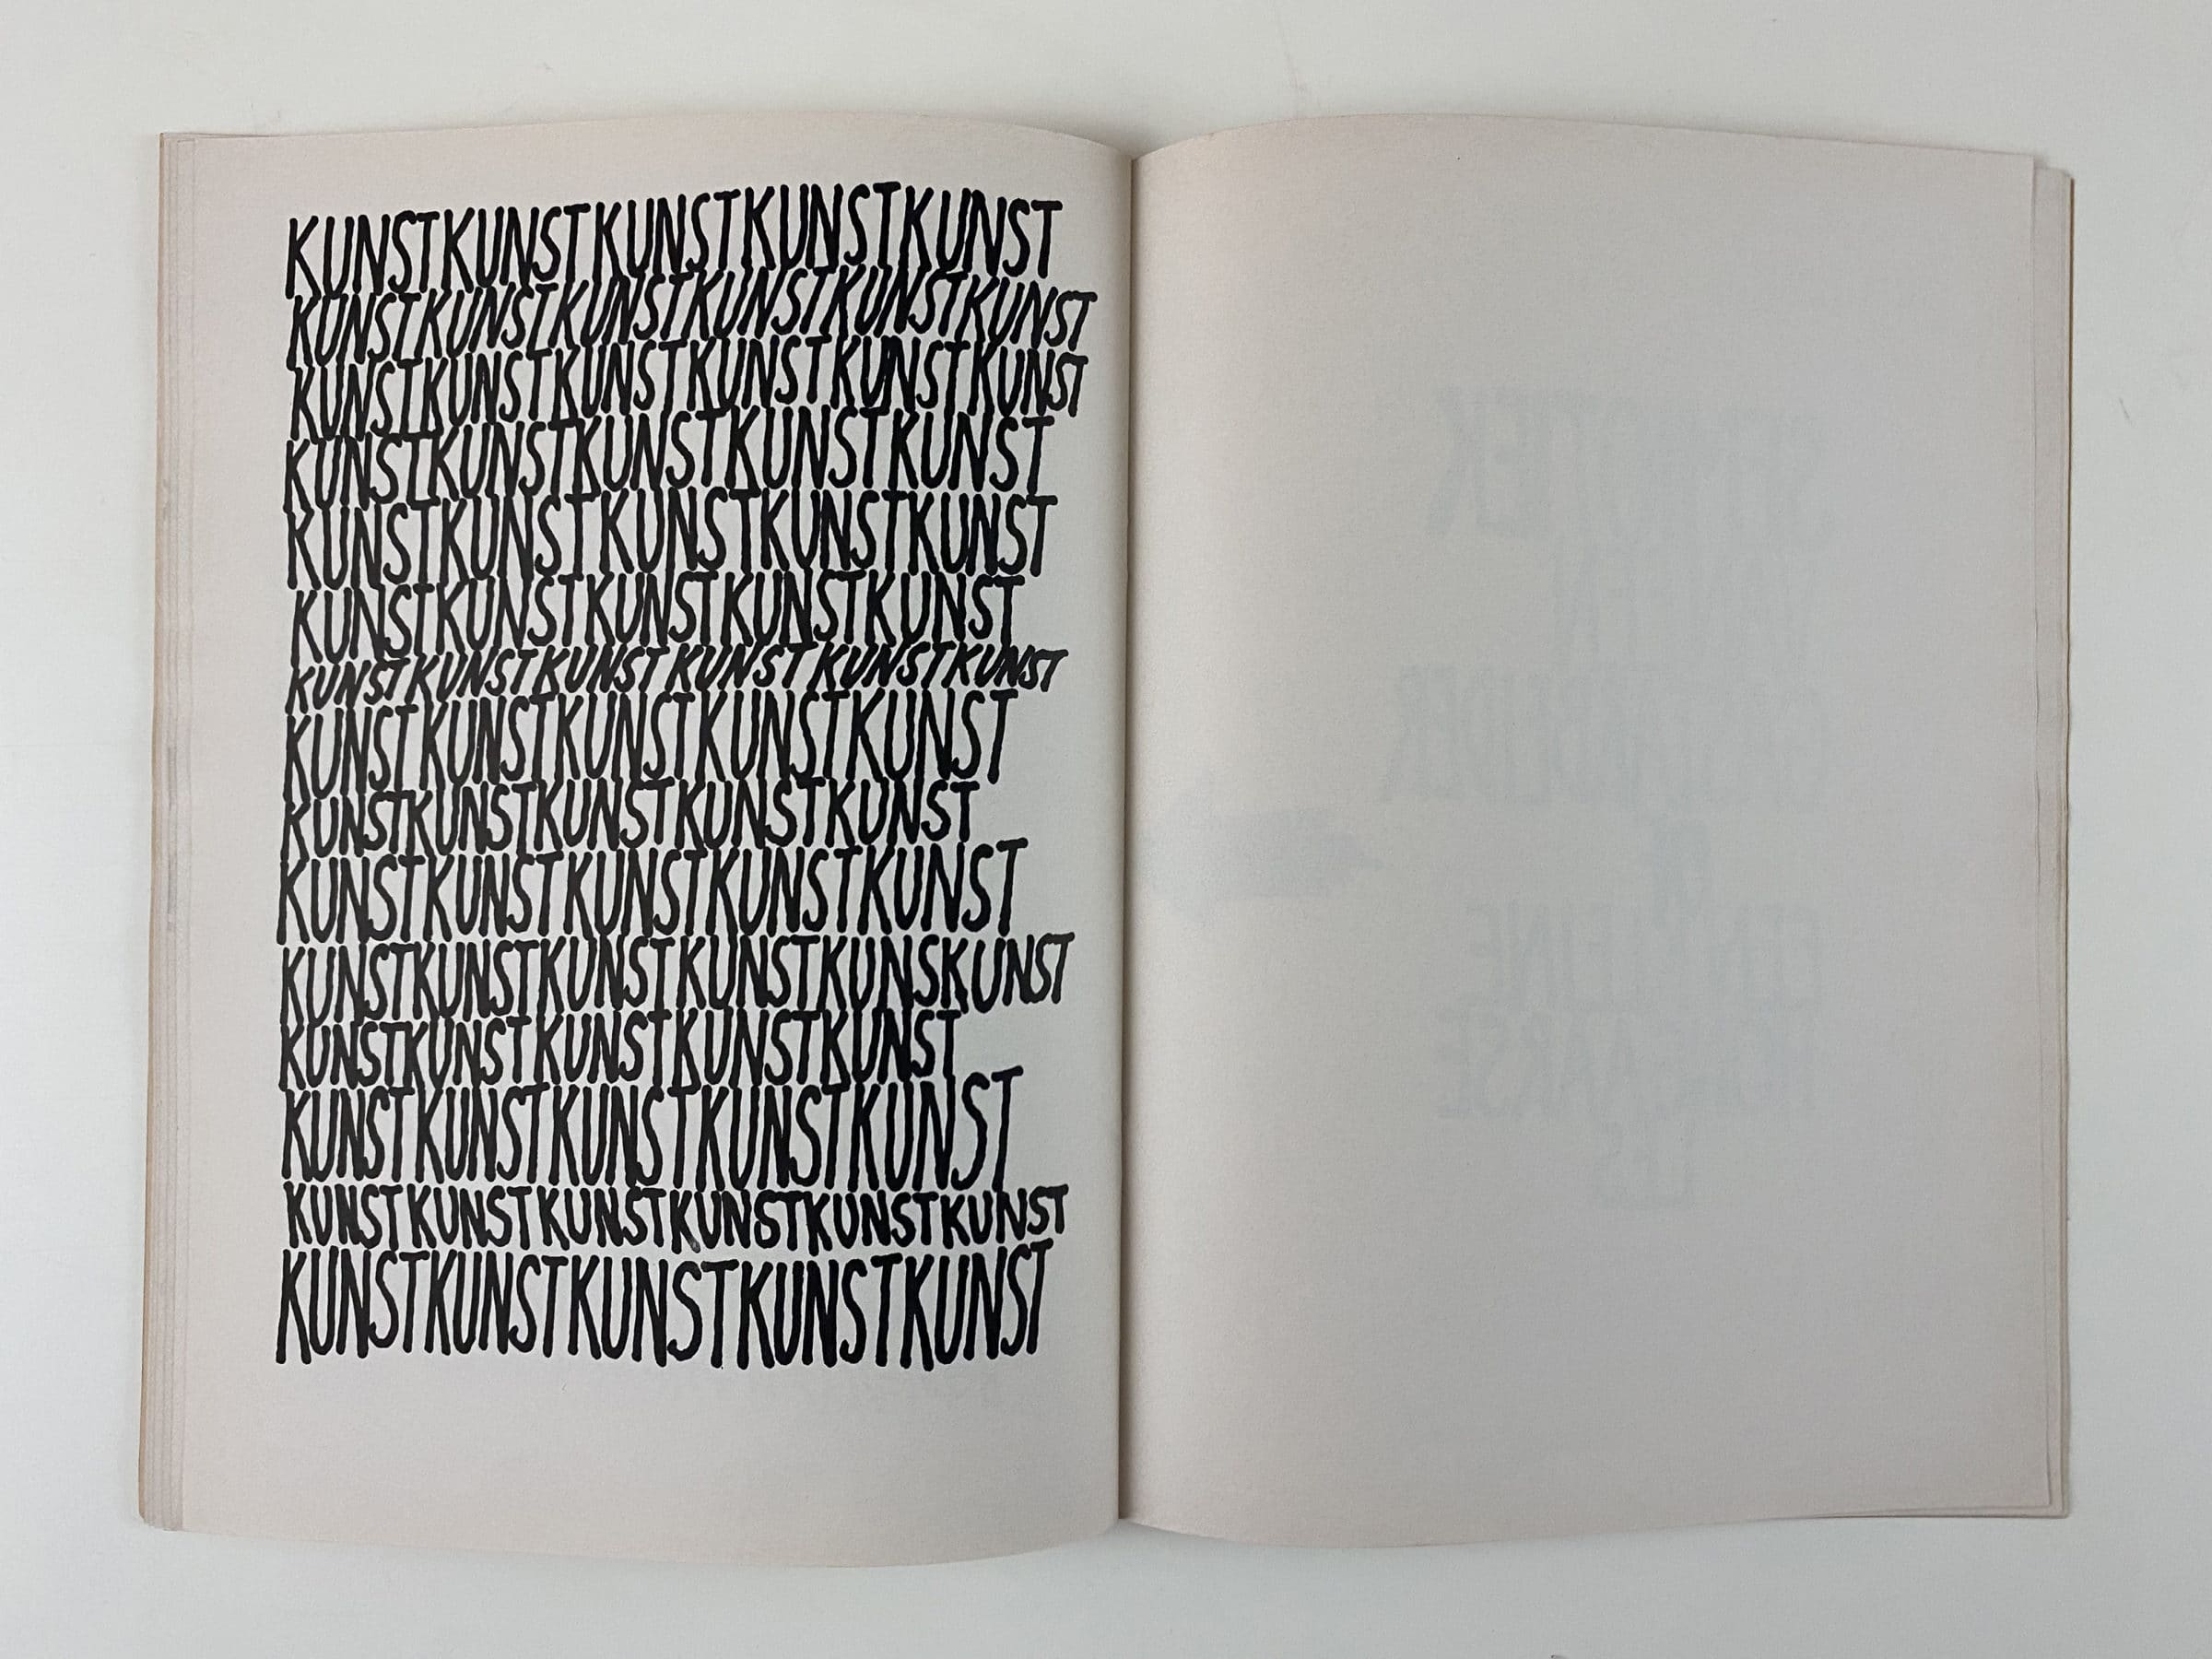 KUNSTKUNSTKUNSTKUNSTKUNST
KUNSTKUNSTKUNSTKUNSTKUNSTKUNST
KUNSTKUNSTKUNSTKUNSTKUNSTKUNST
KUNSTKUNSTKUNSTKUNSTKUNST
KUNSTKUNSTKUNSTKUNSTKUNST
KUNSTKUNSTKUNSTKUNSTKUNST
KUNSTKUNSTKUNSTKUNSTKUNSTKUNST
KUNSTKUNSTKUNSTKUNSTKUNST
KUNSTKUNSTKUNSTKUNSTKUNST
KUNSTKUNSTKUNSTKUNSTKUNST
KUNSTKUNSTKUNSTKUNSTKUNSKUNST
KUNSTKUNSTKUNSTKUNSTKUNST
KUNSTKUNSTKUNSTKUNSTKUNST
KUNSTKUNSTKUNSTKUNSTKUNSTKUNST
KUNSTKUNSTKUNSTKUNSTKUNST